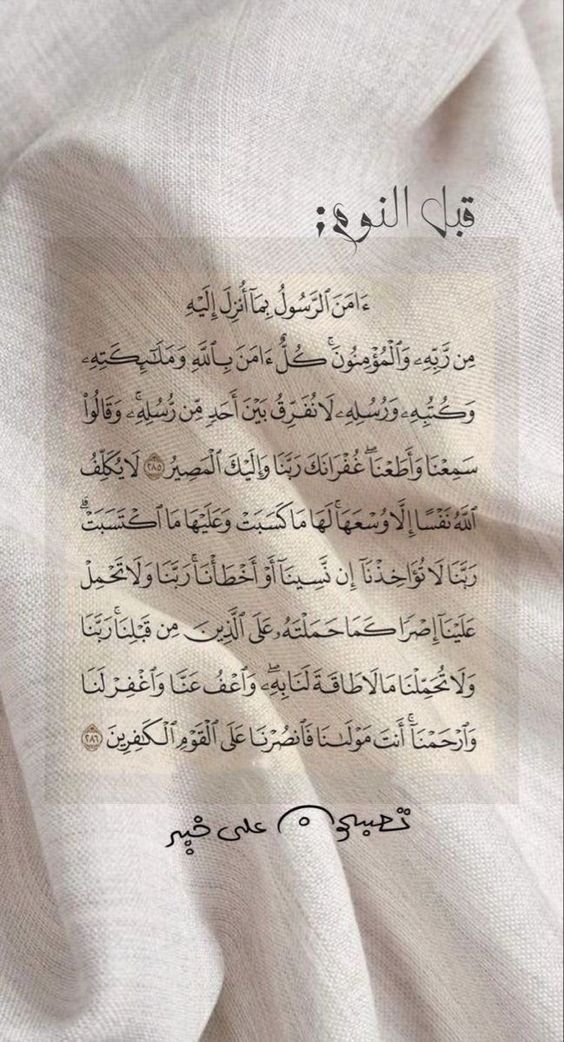 قبل النوم:
ءَامَنَ ٱلرَّسُولُ بِمَآ أُنزِلَ إِلَيْهِ
مِن رَّبِّهِۦ وَٱلْمُؤْمِنُونَ ۚ كُلٌّ ءَامَنَ بِٱللَّهِ وَمَلَـٰٓئِكَتِهِۦ
وَكُتُبِهِۦ وَرُسُلِهِۦ لَا نُفَرِّقُ بَيْنَ أَحَدٍ مِّن رُّسُلِهِۦ ۚ وَقَالُوا۟
سَمِعْنَا وَأَطَعْنَا ۖ غُفْرَانَكَ رَبَّنَا وَإِلَيْكَ ٱلْمَصِيرُ ٢٨٥ لَا يُكَلِّفُ
ٱللَّهُ نَفْسًا إِلَّا وُسْعَهَا ۚ لَهَا مَا كَسَبَتْ وَعَلَيْهَا مَا ٱكْتَسَبَتْ ۗ
رَبَّنَا لَا تُؤَاخِذْنَآ إِن نَّسِينَآ أَوْ أَخْطَأْنَا ۚ رَبَّنَا وَلَا تَحْمِلْ
عَلَيْنَآ إِصْرًا كَمَا حَمَلْتَهُۥ عَلَى ٱلَّذِينَ مِن قَبْلِنَا ۚ رَبَّنَا
وَلَا تُحَمِّلْنَا مَا لَا طَاقَةَ لَنَا بِهِۦ ۖ وَٱعْفُ عَنَّا وَٱغْفِرْ لَنَا
وَٱرْحَمْنَآ ۚ أَنتَ مَوْلَىٰنَا فَٱنصُرْنَا عَلَى ٱلْقَوْمِ ٱلْكَـٰفِرِينَ ٢٨٦
تصبحون على خير